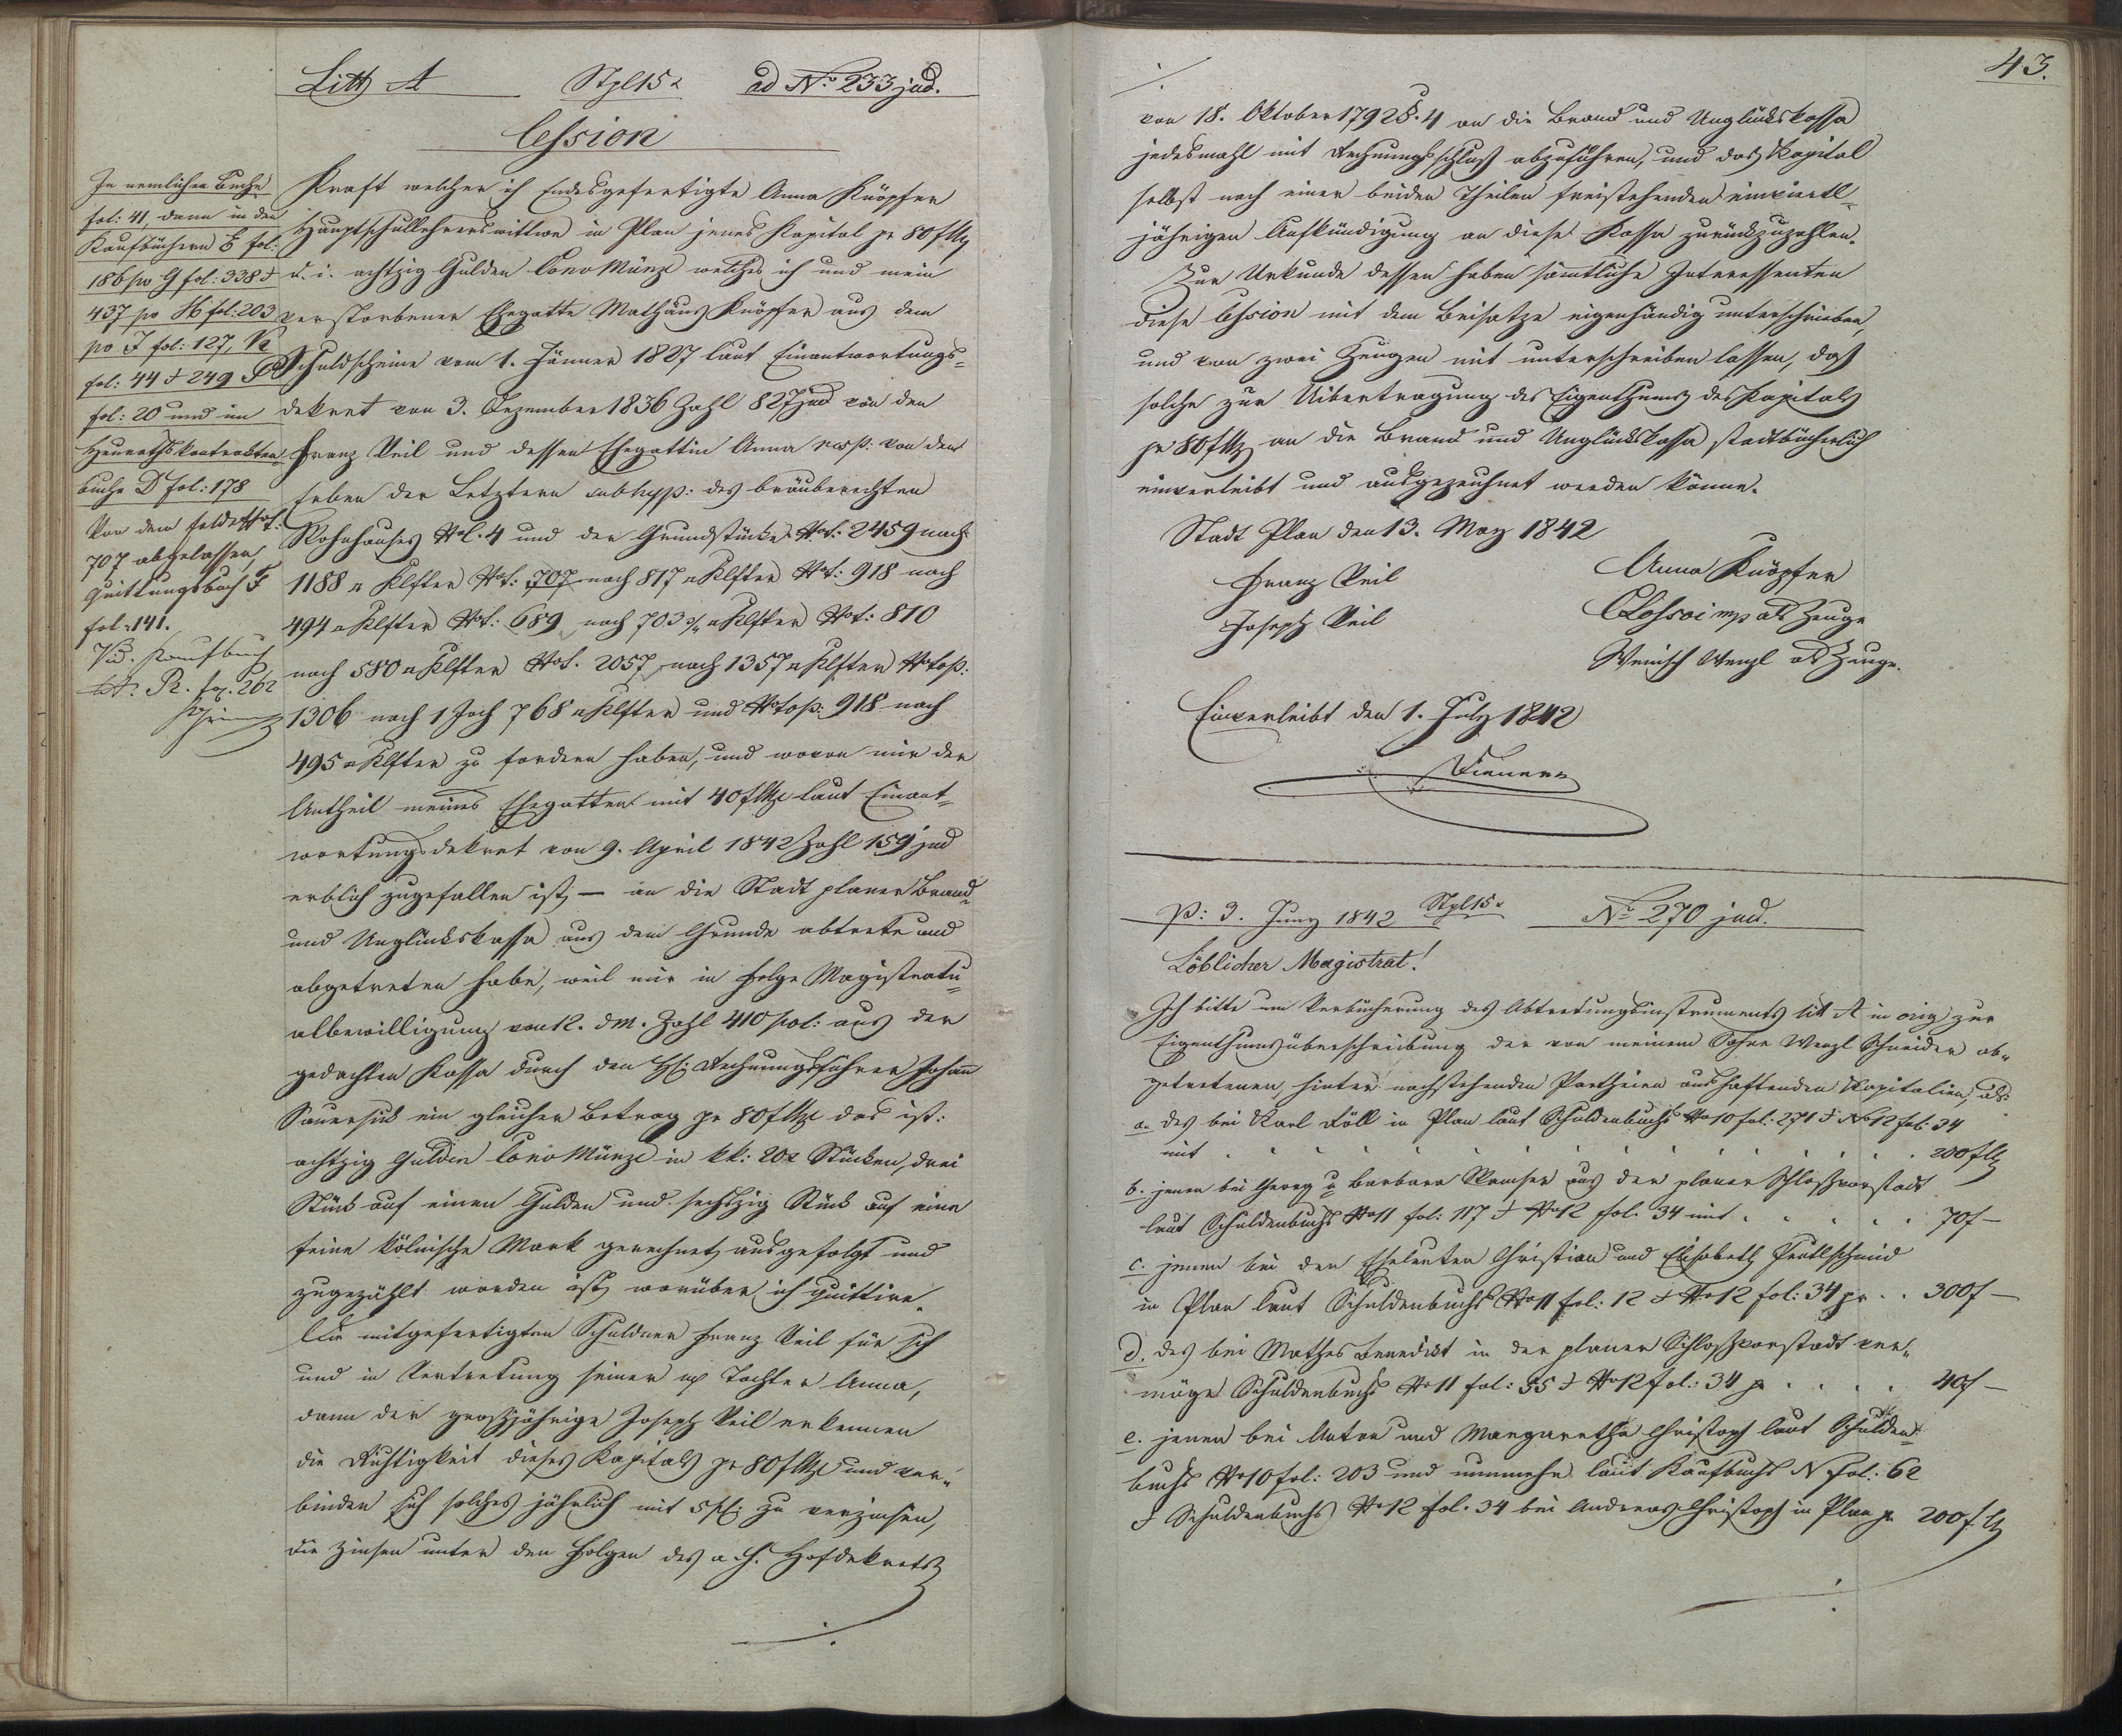 Litt A Stpl 15 x ad No. 233 jud.
Cession
In nemlichen Buche
fol: 41, dann in den
Kaufbüchern E fol:
186 po G fol: 338 &
437 po H fol: 203
po I fol: 127, K
fol: 44 & 249
fol: 20 und im
Heurathskontrakten
buche D fol: 178
Von dem Felde Not:
707 abgelassen,
Quittungsbuch F
fol. 141.
Vid. Kaufbuch
litt. R. fol. 262
Kraft welcher ich Endesgefertigte Anna Knöpfer
Hauptschullehrerswittwe in Plan jenes Kapital pr 80 f Mz
d. i. achtzig Gulden Conv Münze welches ich und mein
verstorbener Ehegatte Mathäus Knöpfer aus dem
Schuldscheine vom 1. Jänner 1827 laut Einantwortungs=
dekret von 3. Dezember 1836 Zahl 827 jud von den
Franz Veil und dessen Ehegattin Anna resp: von den
Erben der Letztern subhyp: des bräuberechten
Wohnhauses No. 4 und der Grundstücke Not: 2459 nach
1188 □ Klfter Not: 707 nach 817 □ Klfter Not: 918 nach
494 □ Klfter Not: 689 nach 703 □ Klfter Not: 810
nach 580 □ Klfter Not. 2057 nach 1357 □ Klfter No top:
1306 nach 1 Joch 768 □ Klfter und No top: 918 nach
495 □ Klfter zu fordern haben, und wovon mir der
Antheil meines Ehegatten mit 40 f Mze laut Einant=
wortungsdekret von 9. April 1842 Zahl 159 jud
erblich zugefallen ist, — an die Stadt planer Brand=
und Unglückskassa aus dem Grunde abtrete und
abgetreten habe, weil mir in Folge Magistratu=
albewilligung von 12. d M. Zahl 410 pol: aus der
gedachten Kassa durch den H: Rechnungsführer Johann
Sauersick ein gleicher Betrag pr 80 f Mze das ist:
achtzig Gulden Conv Münze in kk: 20 x Stücken, drei
Stück auf einen Gulden und sechszig Stück auf eine
feine kölnische Mark gerechnet ausgefolgt und
zugezählt worden ist, worüber ich quittire.
Die mitgefertigten Schuldner Franz Veil für sich
und in Vertretung seiner mj Tochter Anna,
dann der großjährige Joseph Veil erkennen
die Richtigkeit dieses Kapitals pr 80 f Mze und ver=
binden sich solches jährlich mit 5 pC: zu verzinsen,
die Zinsen unter den Folgen des a. h. Hofdekrets
43.
von 18. Oktober 1792 §. 4 an die Brand und Unglückskassa
jedesmahl mit Rechnungsschluß abzuführen, und das Kapital
selbst nach einer beiden Theilen freistehenden einviertl=
jährigen Aufkündigung an diese Kassa zurückzuzahlen.
Zur Urkunde dessen haben sämmtliche Interessenten
diese Cession mit dem Beisatze eigenhändig unterschrieben,
und von zwei Zeugen mit unterschreiben lassen, daß
solche zur Uibertragung des Eigenthums des Kapitals
pr 80 f Mz an die Brand und Unglückskassa stadtbücherlich
einverleibt und ausgezeichnet werden könne.
Stadt Plan den 13. May 1842
Franz Veil Anna Knöpfer
Joseph Veil mp als Zeuge
Wenisch Wenzl als Zeuge.
Einverleibt den 1. July 1842
p: 3. Juny 1842 Stpl 15 x No. 270 jud.
Löblicher Magistrat!
Ich bitte um Verbücherung des Abtretungsinstruments litt A in orig zur
Eigenthumsüberschreibung der von meinem Sohne Wenzl Schneider ab=
getretenen, hinter nachstehenden Partheien aushaftenden Kapitalien, als:
a. des bei Karl Föll in Plan laut Schuldenbuchs No 10 fol: 271 & No 12 fol: 34
mit . . . . . . . . . . 200 f Mz
b. jenen bei Georg u Barbara aus der planer Schloßvorstadt
laut Schuldenbuchs No 11 fol: 117 & No 12 fol. 34 mit . . . . . 70 f —
c. jenen bei den Eheleuten Christian und Elisabeth
in Plan laut Schuldenbuchs No 11 fol: 12 & No 12 fol: 34 pr . . 300 f —
d. des bei Mathes Benedikt in der planer Schloßvorstadt ver=
möge Schuldenbuchs No 11 fol: 55 & No 12 fol.: 34 pr . . . . 40 f —
e. jenen bei Anton und Margaretha Christoph laut Schulden=
buchs No 10 fol: 203 und nunmehr laut Kaufbuchs N fol. 62
& Schuldenbuchs No 12 fol. 34 bei Andreas Christoph in Plan pr 200 f Mz